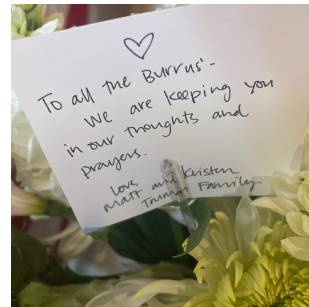 To all the Burrus'-
We are keeping you
in our thoughts and
prayers.
Love,
Matt and Kristen
Family